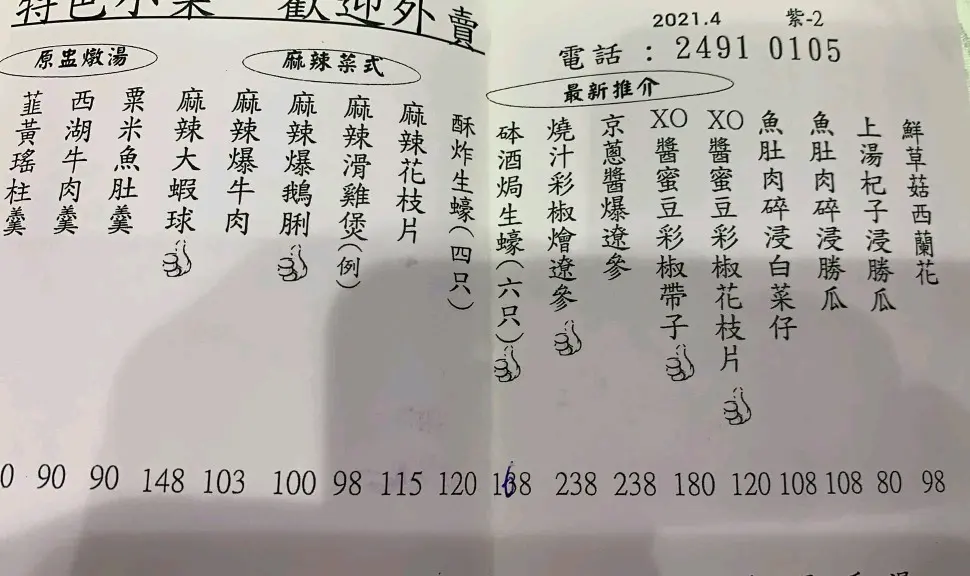 特色小菜 歡迎外賣
2021.4 紫-2
電話：2491 0105
最新推介
鮮草菇西蘭花 98
上湯杞子浸勝瓜 80
魚肚肉碎浸勝瓜 108
魚肚肉碎浸白菜仔 108
XO醬蜜豆彩椒花枝片 120
XO醬蜜豆彩椒帶子 180
京蔥醬爆遼參 238
燒汁彩椒燴遼參 238
砵酒焗生蠔(六只) 168
酥炸生蠔(四只) 120
麻辣菜式
麻辣花枝片 115
麻辣滑雞煲(例) 98
麻辣爆鵝脷 100
麻辣爆牛肉 103
麻辣大蝦球 148
原盅燉湯
粟米魚肚羹 90
西湖牛肉羹 90
韮黃瑤柱羹